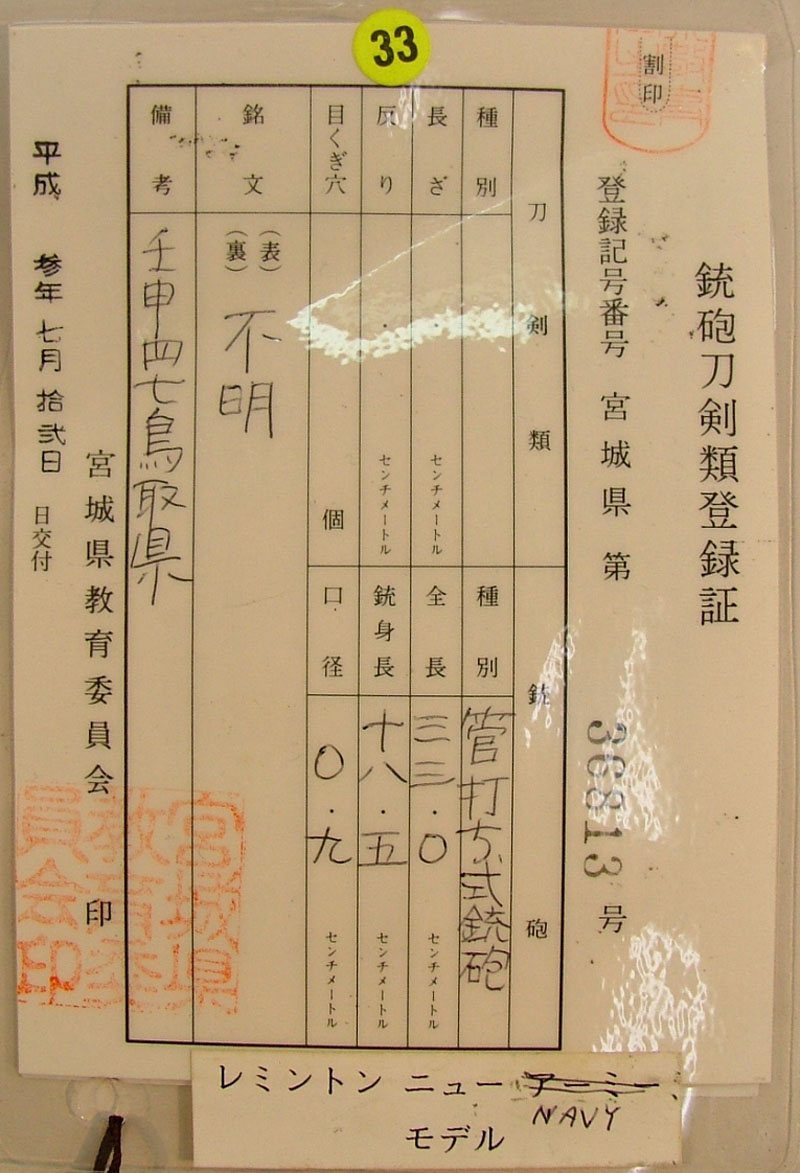 33
割印
銃砲刀剣類登録証
登録記号番号 宮城県 第 36813 号
刀剣類
種別
長さ センチメートル
反り センチメートル
目くぎ穴 個
銘文
(表)
(裏)
不明
備考
壬申四七鳥取県
銃砲
種別 管打ち式銃砲
全長 三三.0 センチメートル
銃身長 十八.五 センチメートル
口径 0.九 センチメートル
宮城県教育委員会 印
宮城県
教育委
員会印
平成 参年 七月 拾弐日 日交付
レミントン ニューアーミー
NAVY
モデル